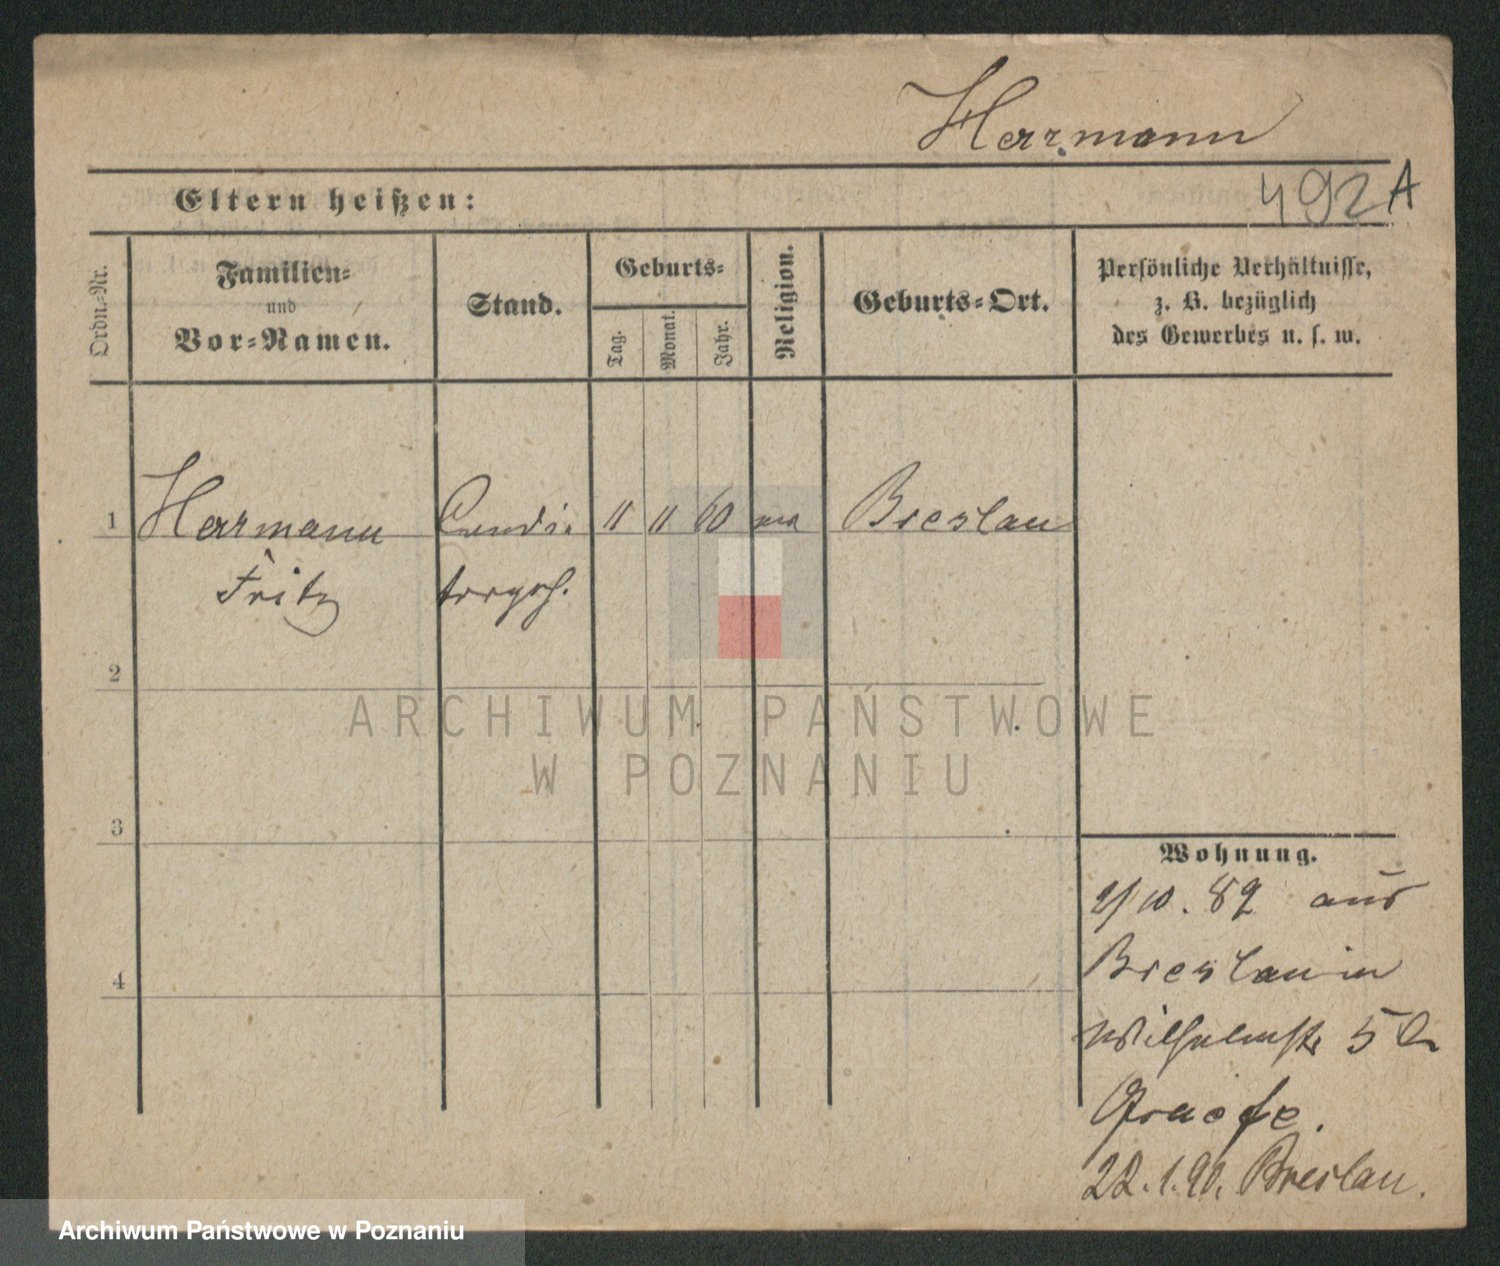 Herrmann
492 A
Eltern heißen:
Ordn.-Nr.
Familien-
und
Vor-Namen.
Stand.
Geburts-
Tag.
Monat.
Jahr.
Religion.
Geburts-Ort.
Persönliche Verhältnisse,
z. B. bezüglich
des Gewerbes u. s. w.
1 Herrmann Condi- 11 11 60 Breslau
Fritz
2
3
4
Wohnung.
2/10. 89 aus
Breslau in
Wilhelmstr 5 b
Graefe.
22.1.90. Breslau.
ARCHIWUM PAŃSTWOWE
W POZNANIU
Archiwum Państwowe w Poznaniu